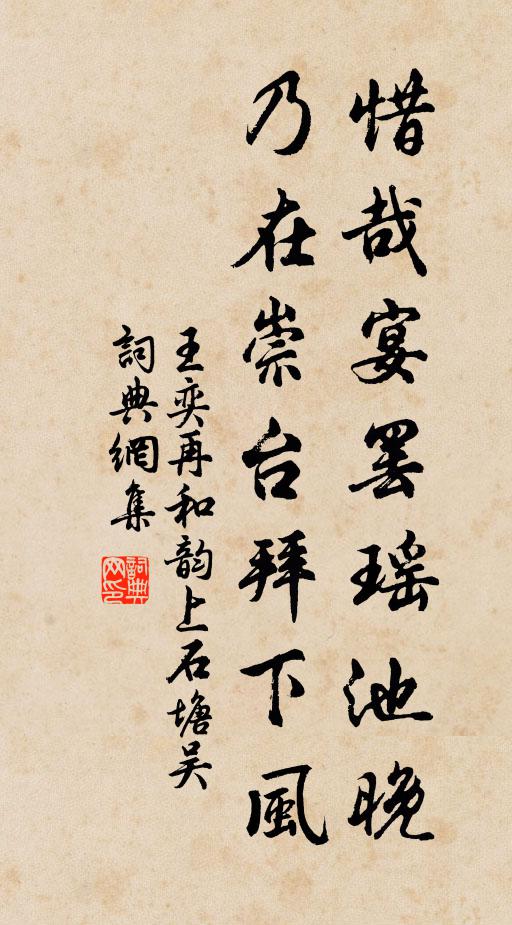 惜哉宴罢瑶池晚
乃在崇台拜下風
王奕再和韵上石塘吴
詞典網集
詞典網印